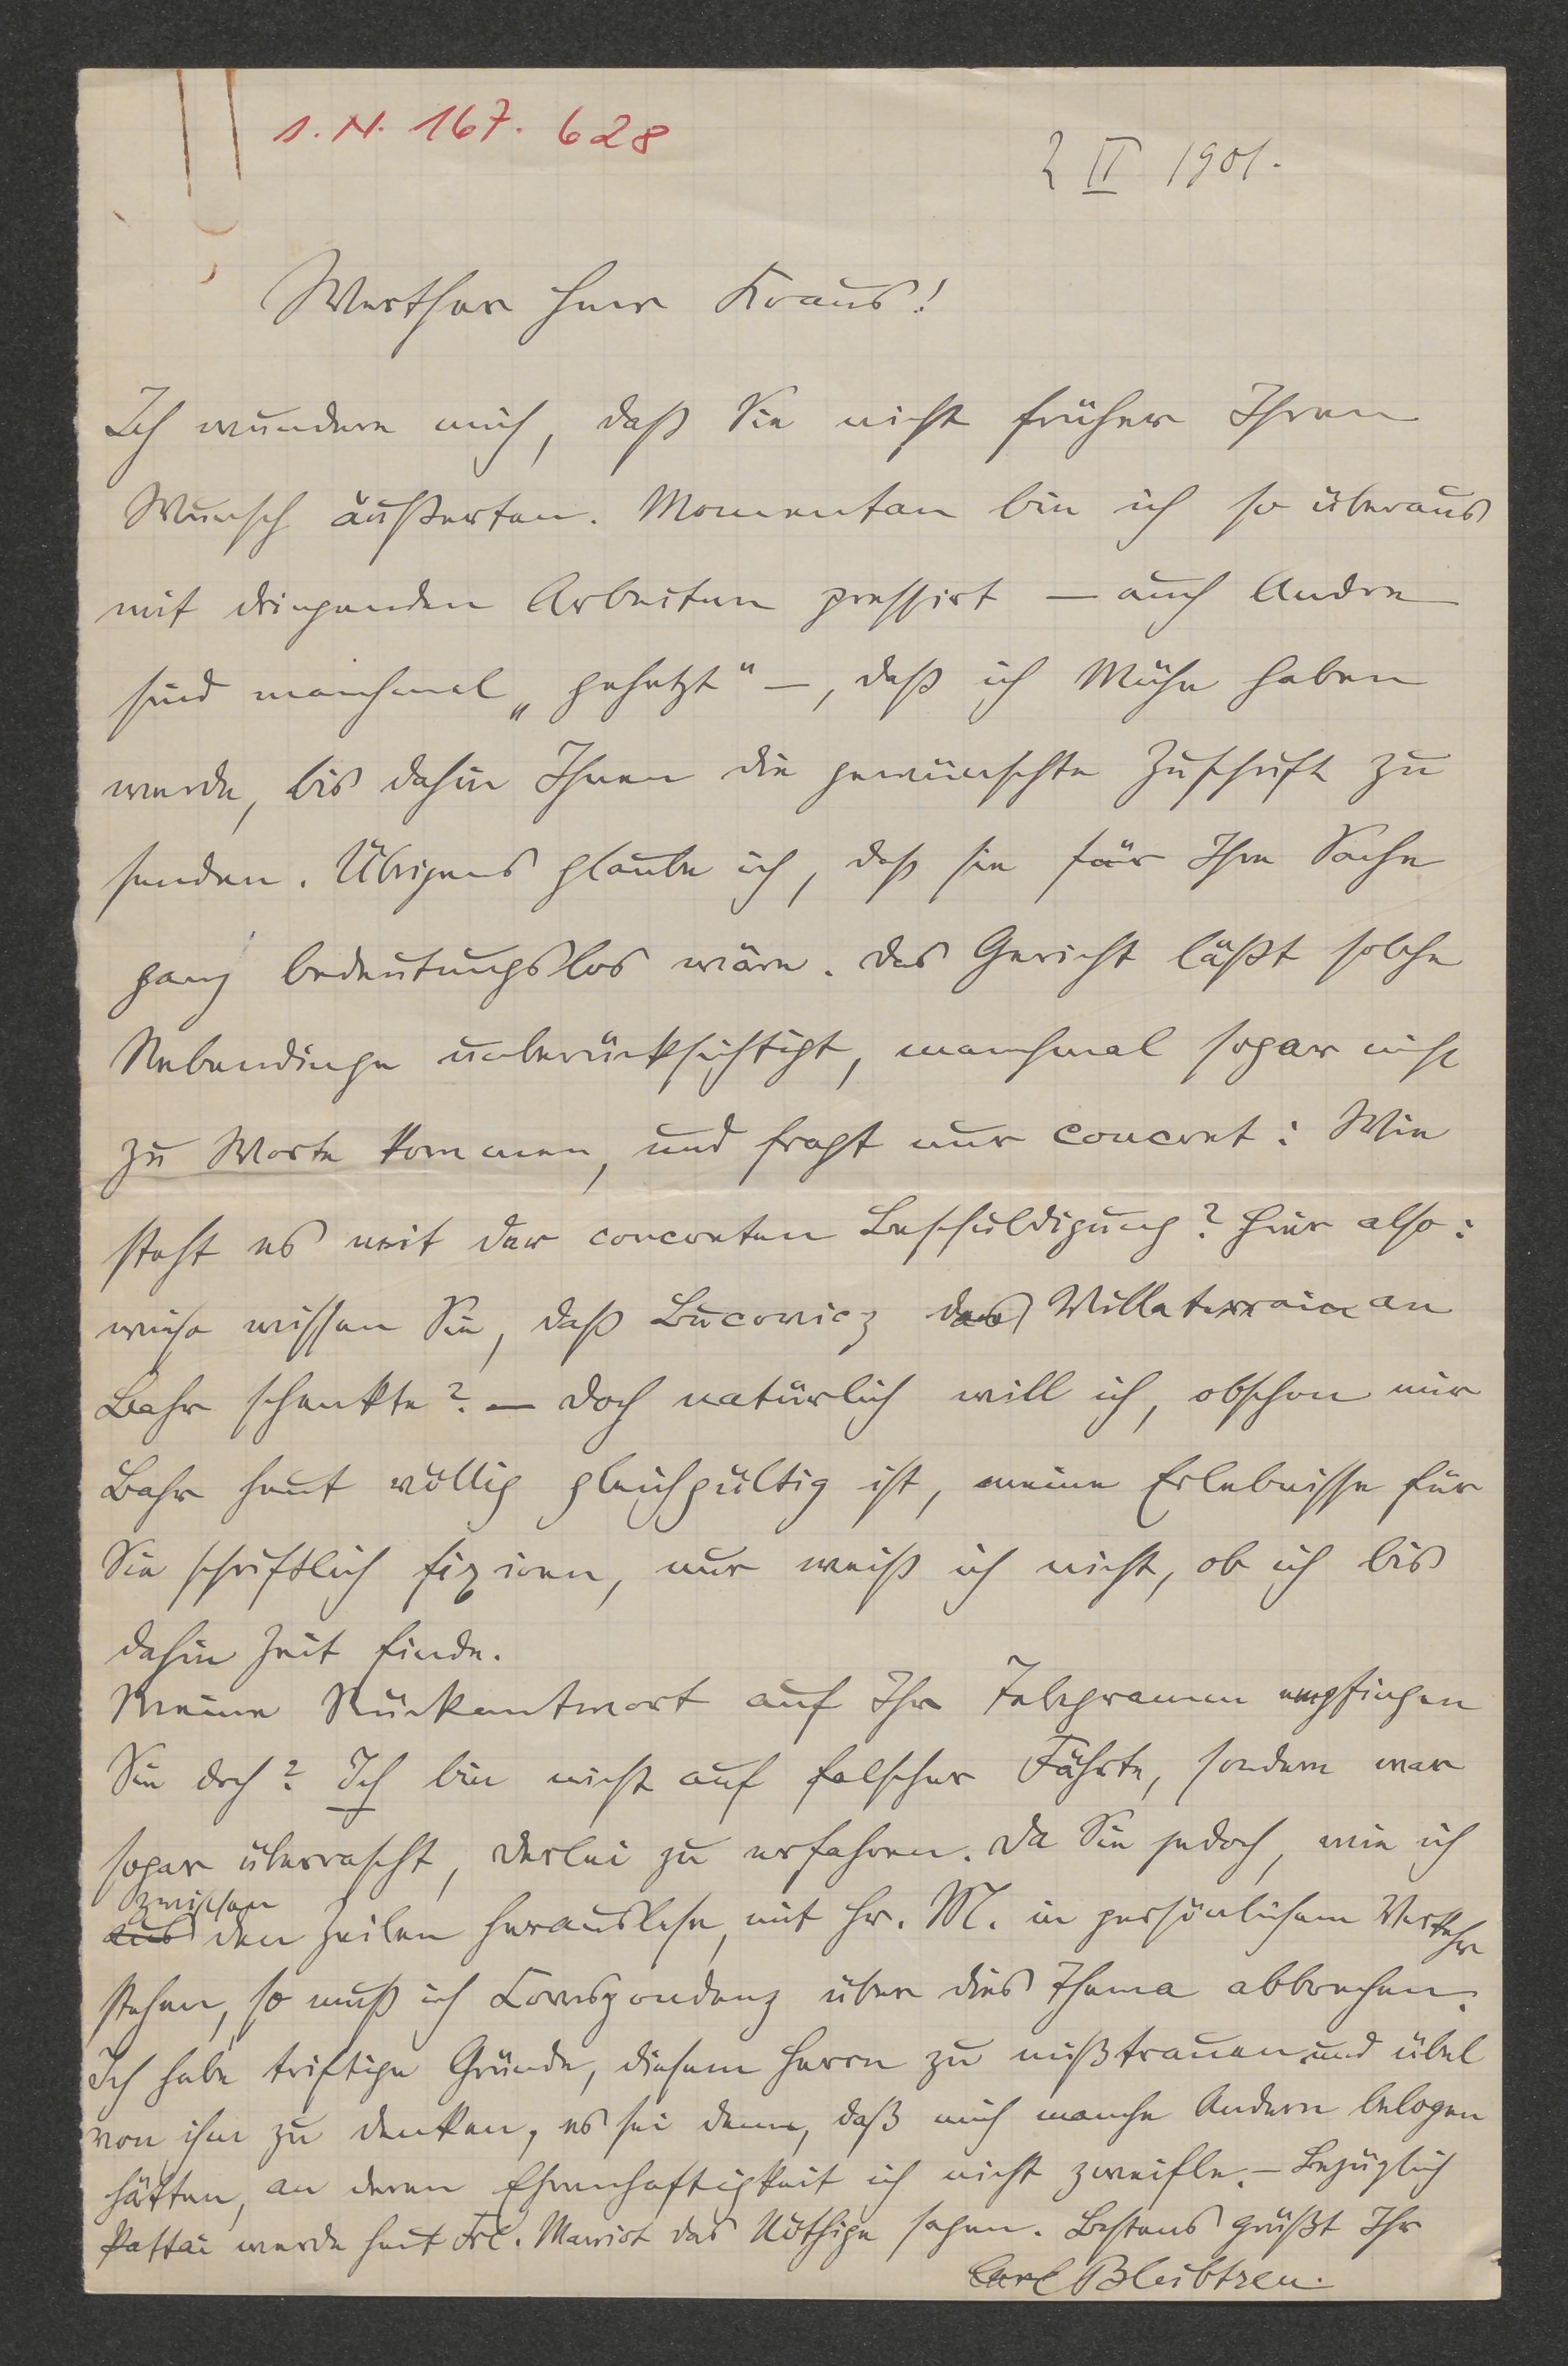 I.N. 167.628
2 II 1901.
Werther Herr Kraus!
Ich wundere mich, daß Sie nicht früher Ihren
Wunsch äußerten. Momentan bin ich so überaus
mit dringenden Arbeiten pressirt — auch Andre
sind manchmal „gehetzt“ —, daß ich Mühe haben
werde, bis dahin Ihnen die gewünschte Zuschrift zu
senden. Übrigens glaube ich, daß sie für Ihre Sache
ganz bedeutungslos wäre. Das Gericht läßt solche
Nebendinge unberücksichtigt, manchmal sogar nicht
zu Worte kommen, und fragt nur concret: Wie
steht es mit der concreten Beschuldigung? Hier also:
wieso wissen Sie, daß Bucovicz das Villaterrain an
Bahr schenkte? — Doch natürlich will ich, obschon mir
Bahr heut völlig gleichgültig ist, meine Erlebnisse für
Sie schriftlich fixiren, nur weiß ich nicht, ob ich bis
dahin Zeit finde.
Meine Rückantwort auf Ihr Telegramm empfingen
Sie doch? Ich bin nicht auf falscher Fährte, sondern war
sogar überrascht, derlei zu erfahren. Da Sie jedoch, wie ich
zwischen
aus den Zeilen herauslese, mit Hr. M. in persönlichem Verkehr
stehen, so muß ich Correspondenz über dies Thema abbrechen.
Ich habe triftige Gründe, diesem Herrn zu mißtrauen und übel
von ihm zu denken, es sei denn, daß mich manche Andern belogen
hätten, an deren Ehrenhaftigkeit ich nicht zweifle. — Bezüglich
Pattai werde heut Frl. Marriot das Nöthige sagen. Bestens grüßt Ihr
Carl Bleibtreu.